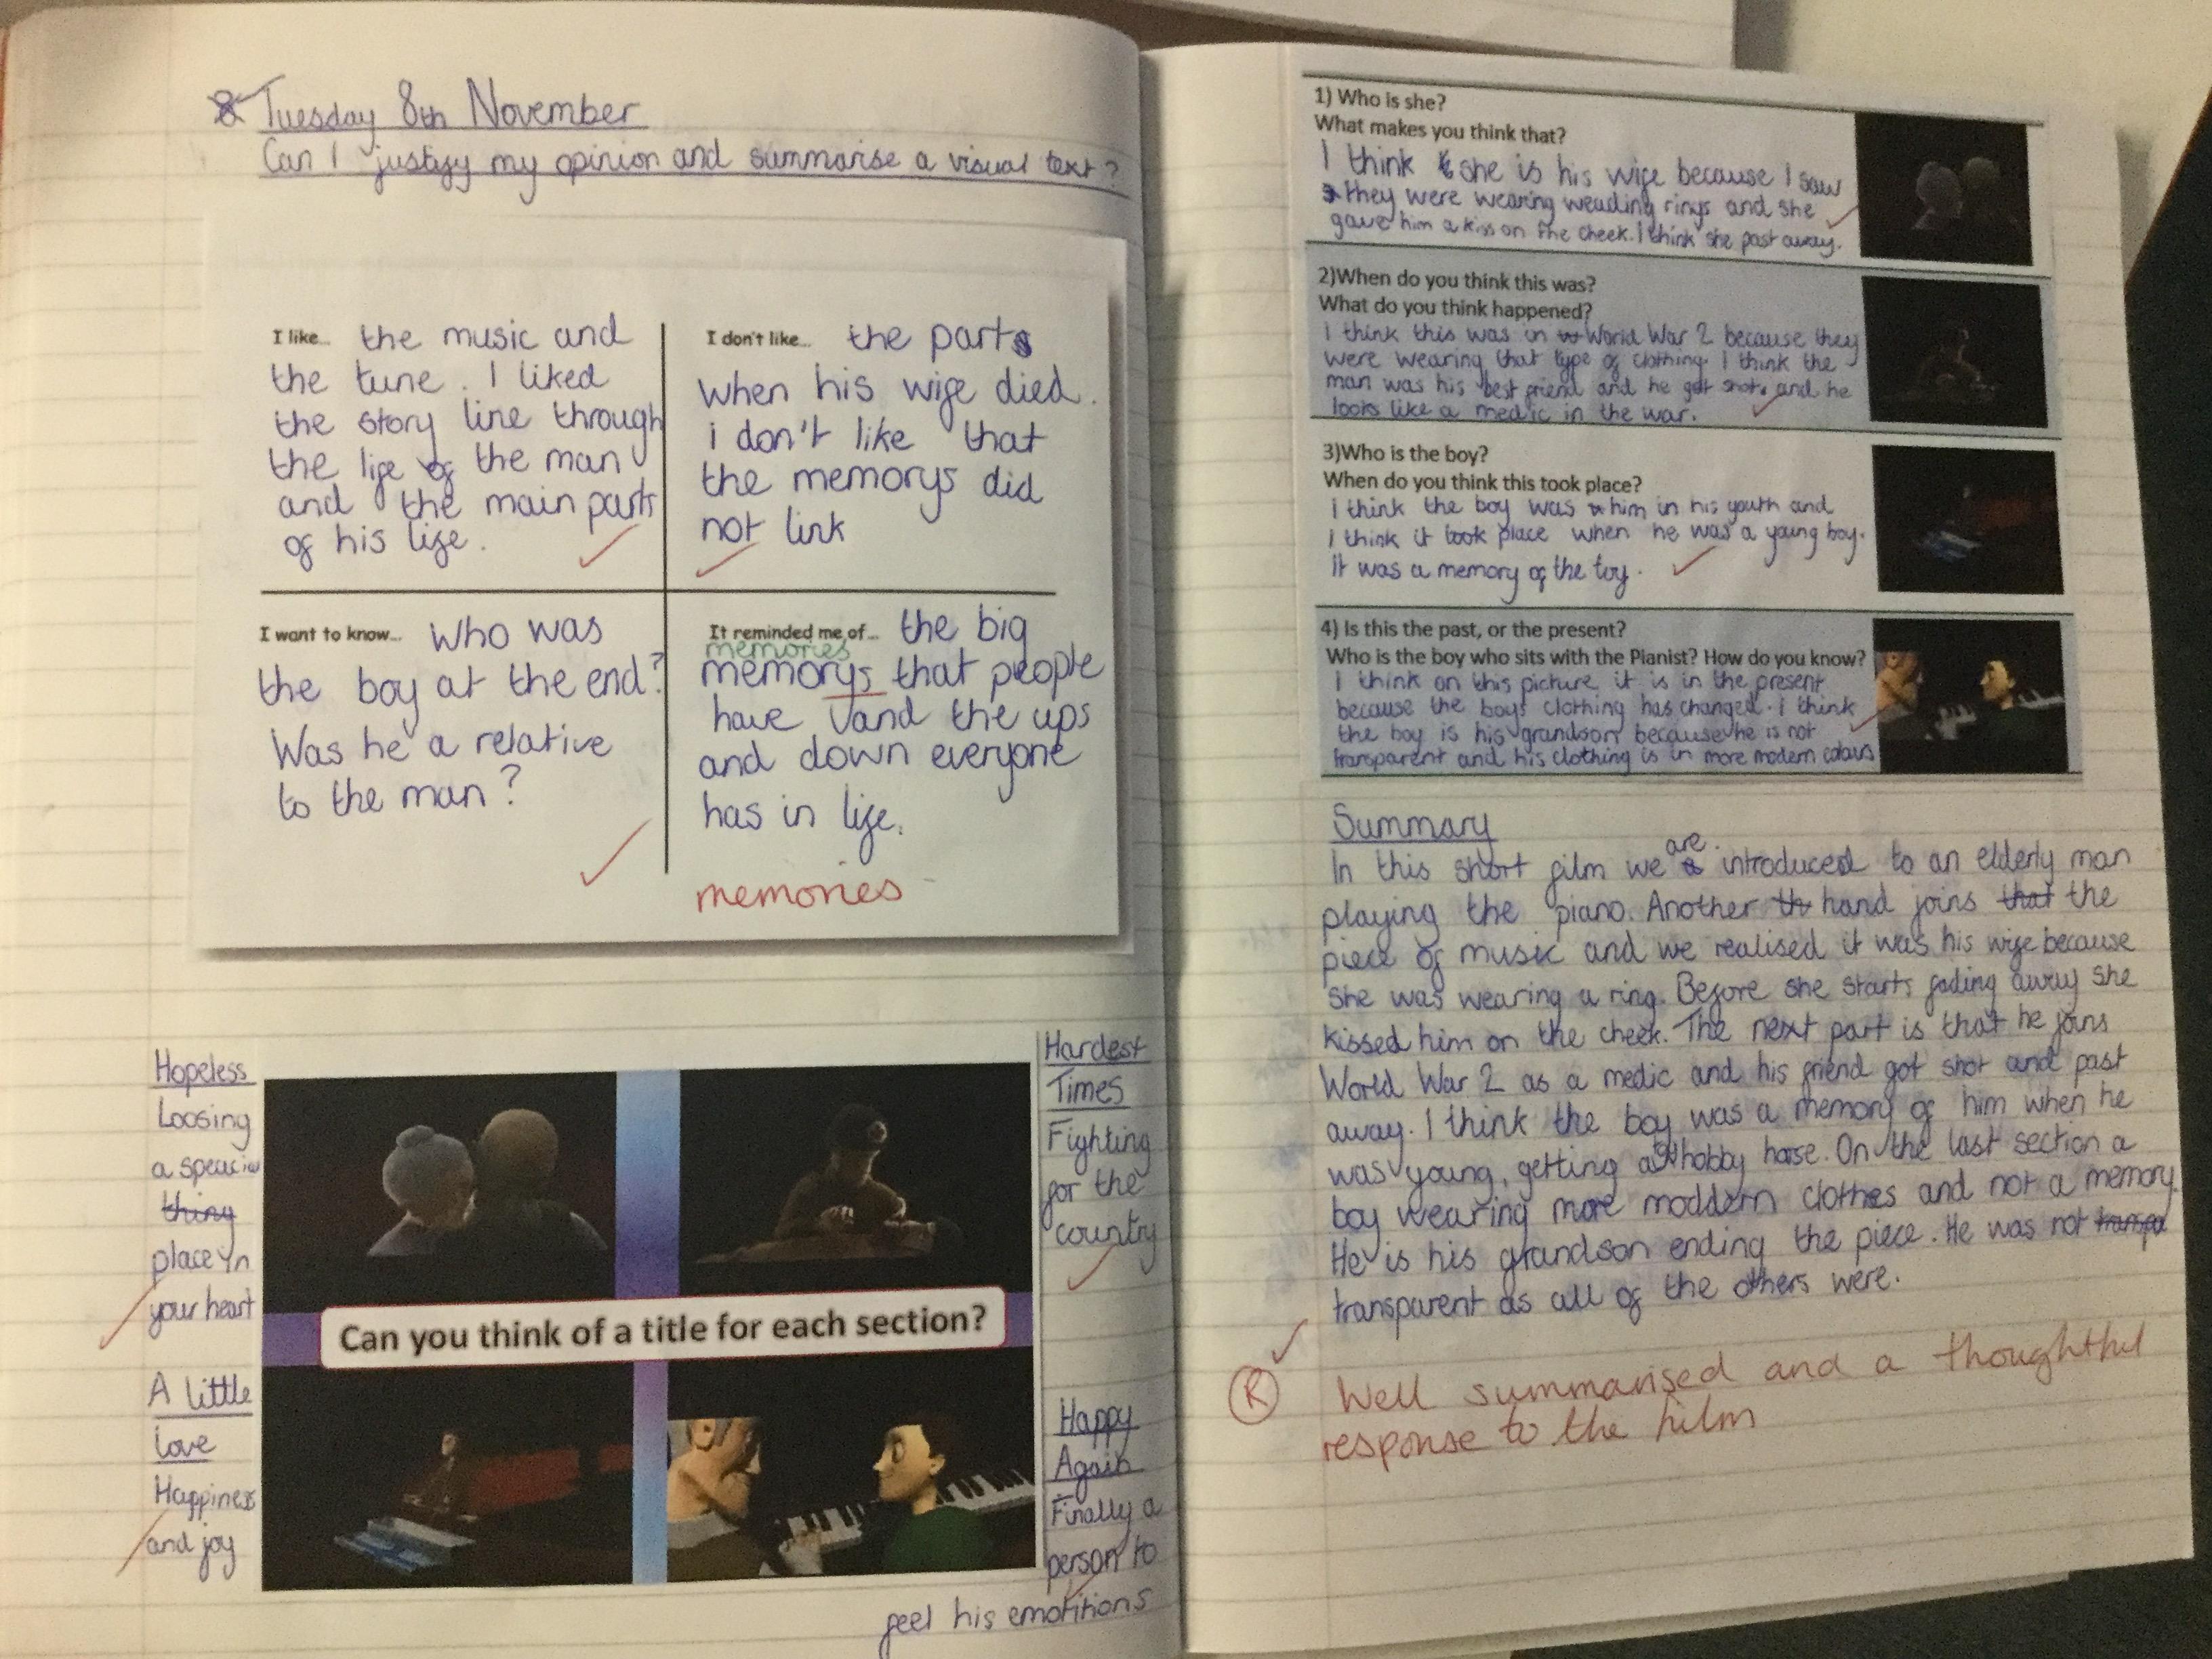 Tuesday 8th November
Can I justify my opinion and summarise a visual text?
I like... the music and
the tune. I liked
the story line through
the life of the man
and the main parts
of his life.
I don't like... the parts
when his wife died.
i don't like that
the memorys did
not link
I want to know... who was
the boy at the end?
Was he a relative
to the man?
It reminded me of... the big
memories
memorys that people
have and the ups
and down everyone
has in life.
memories
Hopeless
Loosing
a speacial
thing
place in
your heart
Hardest
Times
Fighting
for the
country
Can you think of a title for each section?
A little
love
Happiness
and joy
Happy
Again
Finally a
person to
feel his emotitions
1) Who is she?
What makes you think that?
I think she is his wife because I saw
they were wearing weading rings and she
gave him a kiss on the cheek. I think she past away.
2)When do you think this was?
What do you think happened?
I think this was in World War 2 because they
were wearing that type of clothing. I think the
man was his best friend and he got shot. and he
looks like a medic in the war.
3)Who is the boy?
When do you think this took place?
I think the boy was him in his youth and
I think it took place when he was a young boy.
It was a memory of the toy.
4) Is this the past, or the present?
Who is the boy who sits with the Pianist? How do you know?
I think on this picture it is in the present
because the boys clothing has changed. I think
the boy is his grandson because he is not
transparent and his clothing is in more modern colours
Summary
In this short film we are introduced to an elderly man
playing the piano. Another th hand joins that the
piece of music and we realised it was his wife because
she was wearing a ring. Before she starts fading away she
kissed him on the cheek. The next part is that he joins
World War 2 as a medic and his friend got shot and past
away. I think the boy was a memory of him when he
was young, getting a hobby horse. On the last section a
boy wearing more moddern clothes and not a memory.
He is his grandson ending the piece. He was not transpa
transparent as all of the others were.
R Well summarised and a thoughtful
response to the film